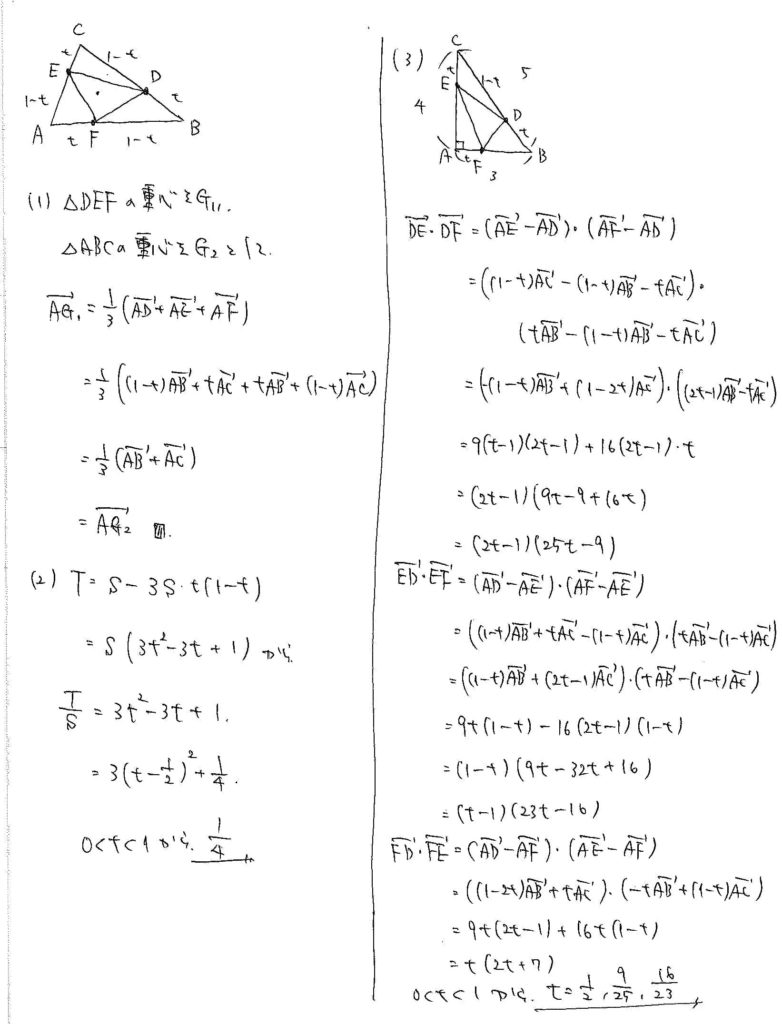 C
t
1-t
E
D
1-t
t
A
t
F
1-t
B
(1) △DEFの重心をG₁,
△ABCの重心をG₂とする.
AG₁→ = 1/3 (AD→ + AE→ + AF→)
= 1/3 ((1-t)AB→ + tAC→ + tAB→ + (1-t)AC→)
= 1/3 (AB→ + AC→)
= AG₂→
(2) T = S - 3S・t(1-t)
= S(3t²-3t+1) より,
T/S = 3t²-3t+1.
= 3(t-1/2)² + 1/4.
0<t<1 より, 1/4
(3)
C
t
1-t
5
E
4
D
t
A
t
F
3
B
DE→・DF→ = (AE→-AD→)・(AF→-AD→)
= ((1-t)AC→ - (1-t)AB→ - tAC→)・
(tAB→ - (1-t)AB→ - tAC→)
= (-(1-t)AB→ + (1-2t)AC→)・((2t-1)AB→ - tAC→)
= 9(t-1)(2t-1) + 16(2t-1)・t
= (2t-1)(9t-9+16t)
= (2t-1)(25t-9)
ED→・EF→ = (AD→-AE→)・(AF→-AE→)
= ((1-t)AB→ + tAC→ - (1-t)AC→)・(tAB→-(1-t)AC→)
= ((1-t)AB→ + (2t-1)AC→)・(tAB→-(1-t)AC→)
= 9t(1-t) - 16(2t-1)(1-t)
= (1-t)(9t-32t+16)
= (t-1)(23t-16)
FD→・FE→ = (AD→-AF→)・(AE→-AF→)
= ((1-2t)AB→ + tAC→)・(-tAB→ + (1-t)AC→)
= 9t(2t-1) + 16t(1-t)
= t(2t+7)
0<t<1 より, t = 1/2, 9/25, 16/23